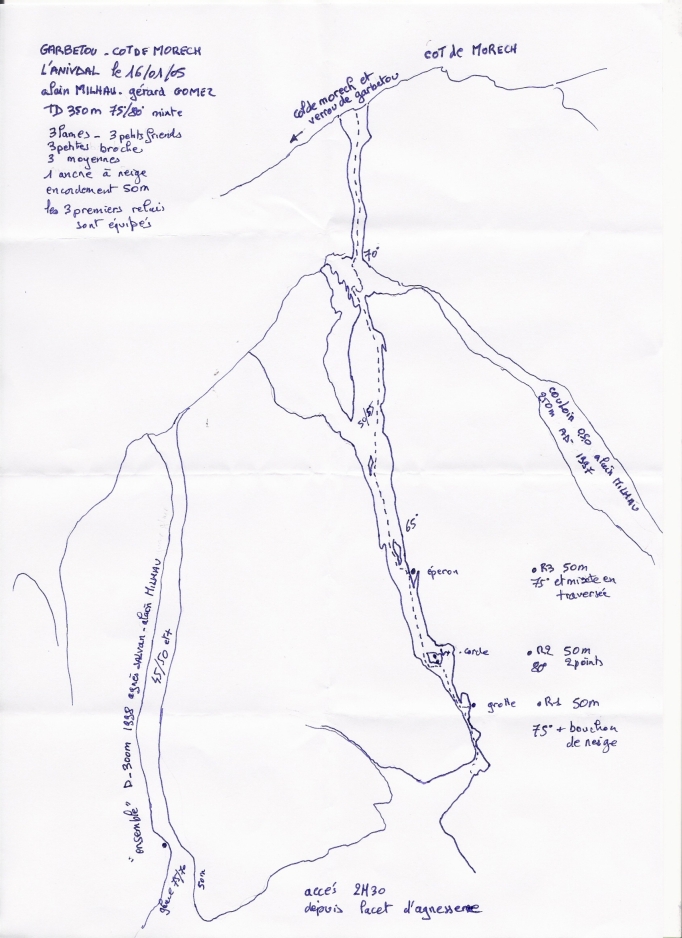 GARBETOU - COT DE MORECH
L'ANIVDAL le 16/01/05
alain MILHAU - gérard GOMEZ
TD 350m 75/80° mixte
3 lames - 3 petits friends
3 petites broches
3 moyennes
1 ancre à neige
encordement 50m
les 3 premiers relais
sont équipés
COT de MORECH
col de morech et
verrou de garbetou
70°
50/55
couloir OSO alain MILHAU
250m AD- 1997
65°
éperon
• R3 50m
75° et mixte en
traversée
corde
• R2 50m
80° 2 points
grotte
• R1 50m
75° + bouchon
de neige
"ensemble" D- 300m 1998 agnès salvan - alain MILHAU
45/50 et+
glace 75/70
50m
accés 2H30
depuis lacet d'agnesserre